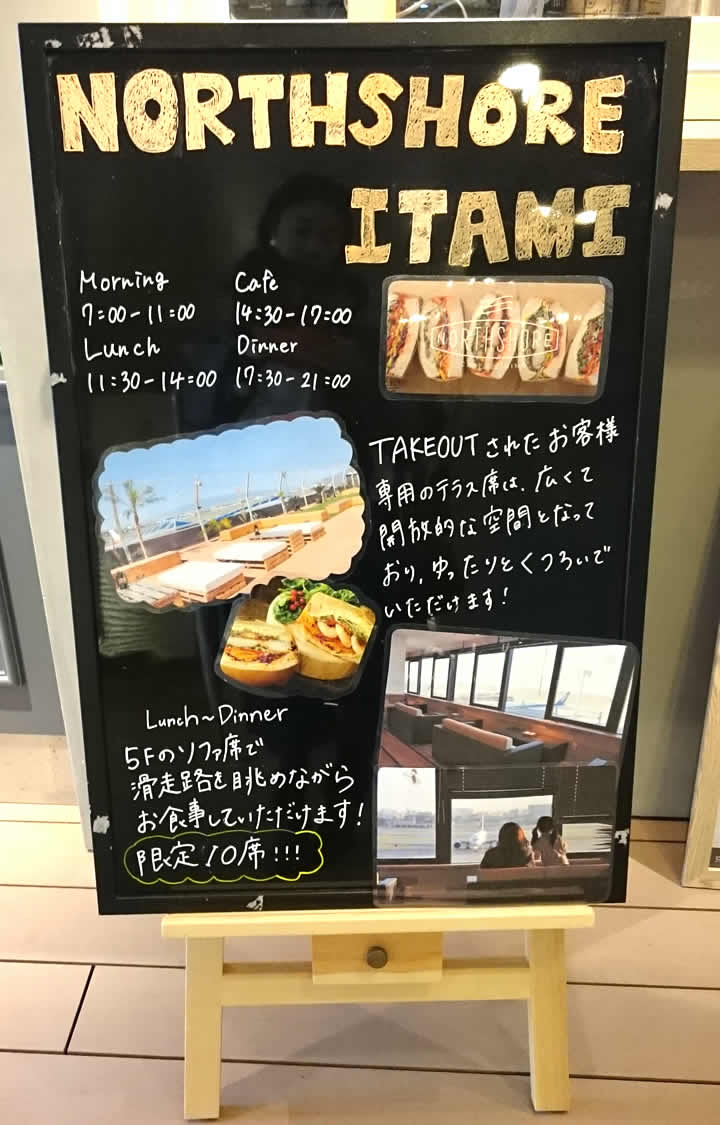 NORTHSHORE
ITAMI
Morning
7:00-11:00
Lunch
11:30-14:00
Cafe
14:30-17:00
Dinner
17:30-21:00
NORTHSHORE
TAKEOUTされたお客様
専用のテラス席は、広くて
開放的な空間となって
おり、ゆったりとくつろいで
いただけます!
Lunch~Dinner
5Fのソファ席で
滑走路を眺めながら
お食事していただけます!
限定10席!!!